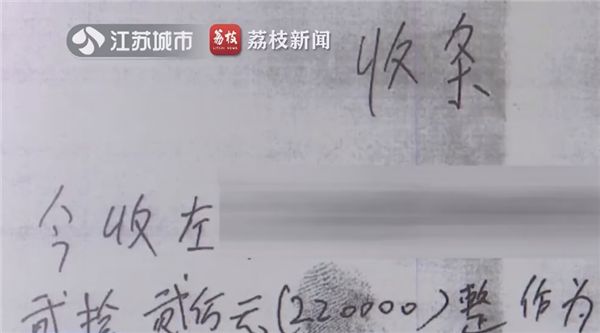 江苏城市 荔枝 LITCHI NEWS 荔枝新闻
收条
今收左
贰拾贰元(220000)整 作为